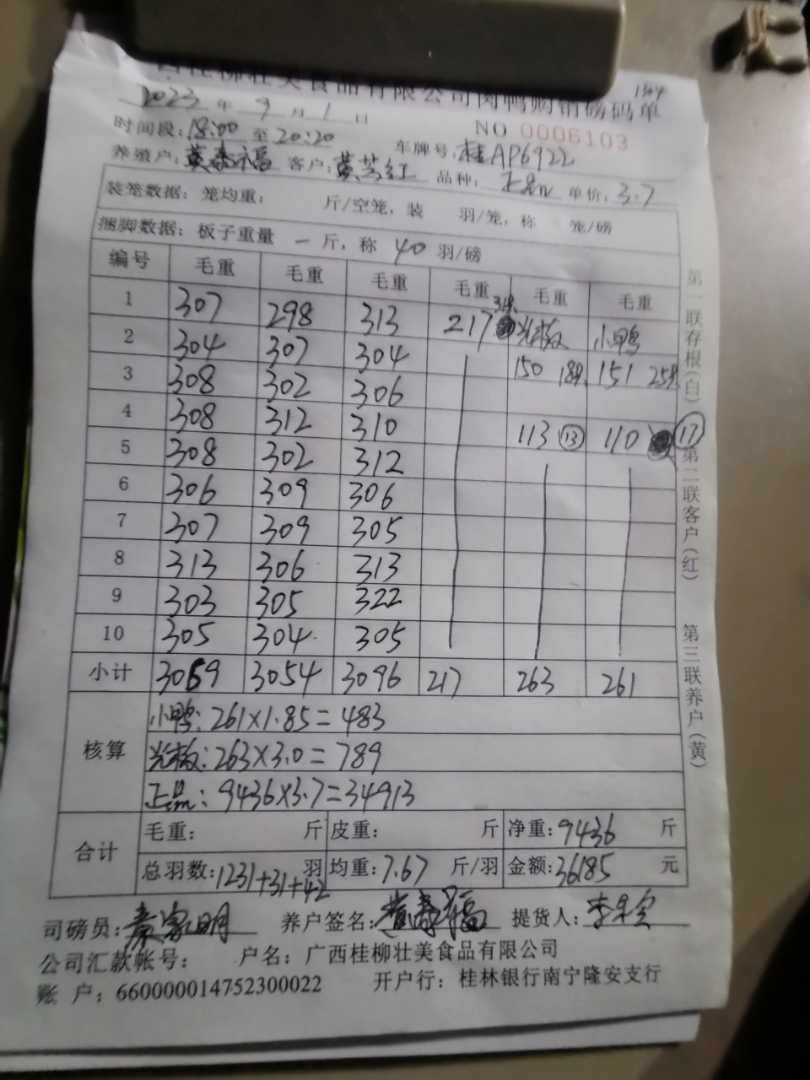 柳壮美食品有限公司肉鸭购销磅码单
2023 年 9 月 1 日 NO 0006103
时间段: 18:00 至 20:20 车牌号: 桂AP6922
养殖户: 黄春福 客户: 黄芳红 品种: 单价: 3.7
装笼数据: 笼均重: 斤/空笼, 装 羽/笼, 称 笼/磅
捆脚数据: 板子重量 一 斤, 称 40 羽/磅
编号 毛重 毛重 毛重 毛重 毛重 毛重
1 307 298 313 217 光板 小鸭
2 304 307 304
3 308 302 306 150 18羽 151 25羽
4 308 312 310 113 13 110 17
5 308 302 312
6 306 309 306
7 307 309 305
8 313 306 313
9 303 305 322
10 305 304 305
小计 3069 3054 3096 217 263 261
核算
小鸭: 261×1.85=483
光板: 263×3.0=789
正品: 9436×3.7=34913
合计
毛重: 斤 皮重: 斤 净重: 9436 斤
总羽数: 1231+31+42 羽 均重: 7.67 斤/羽 金额: 36185 元
司磅员: 黄家明 养户签名: 黄春福 提货人:
公司汇款帐号: 户名: 广西桂柳壮美食品有限公司
账户: 660000014752300022 开户行: 桂林银行南宁隆安支行
第一联存根(白)
第二联客户(红)
第三联养户(黄)